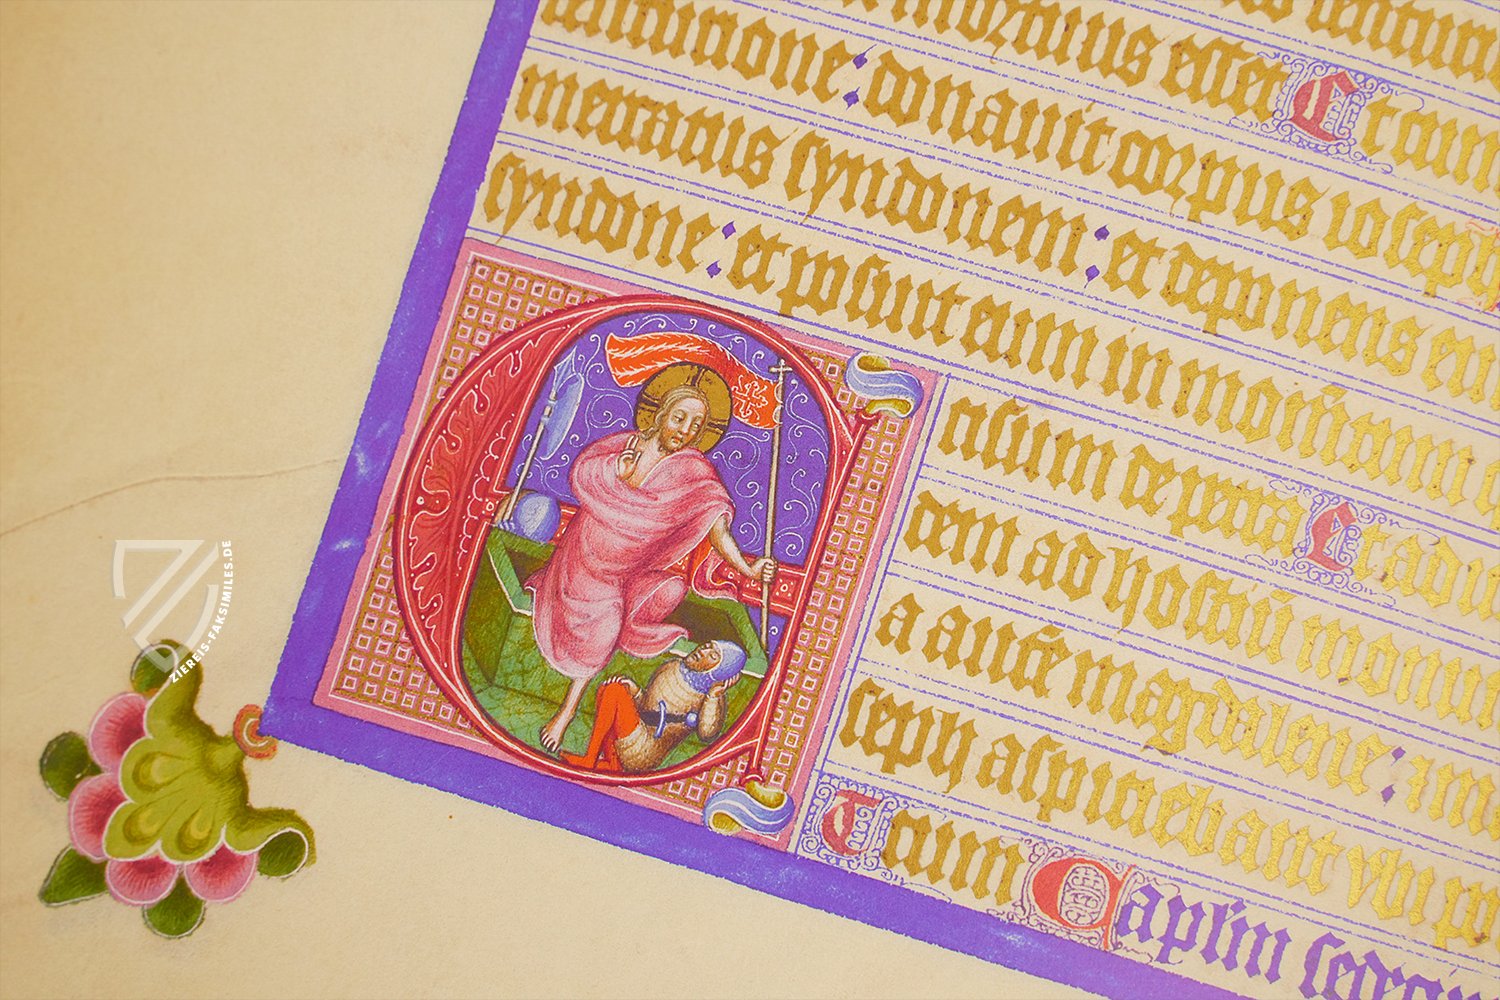 mortuus esset Et cum
turione : donavit corpus ioseph
mercatus syndonem : et deponens
syndone : et posuit eum in monūtum
cisum de petra Et advol
dem ad hostiū monu
a autē magdalene :
seph aspiciebant ubi po
Tum Caplm sedecim
ZIEREIS-FAKSIMILES.DE